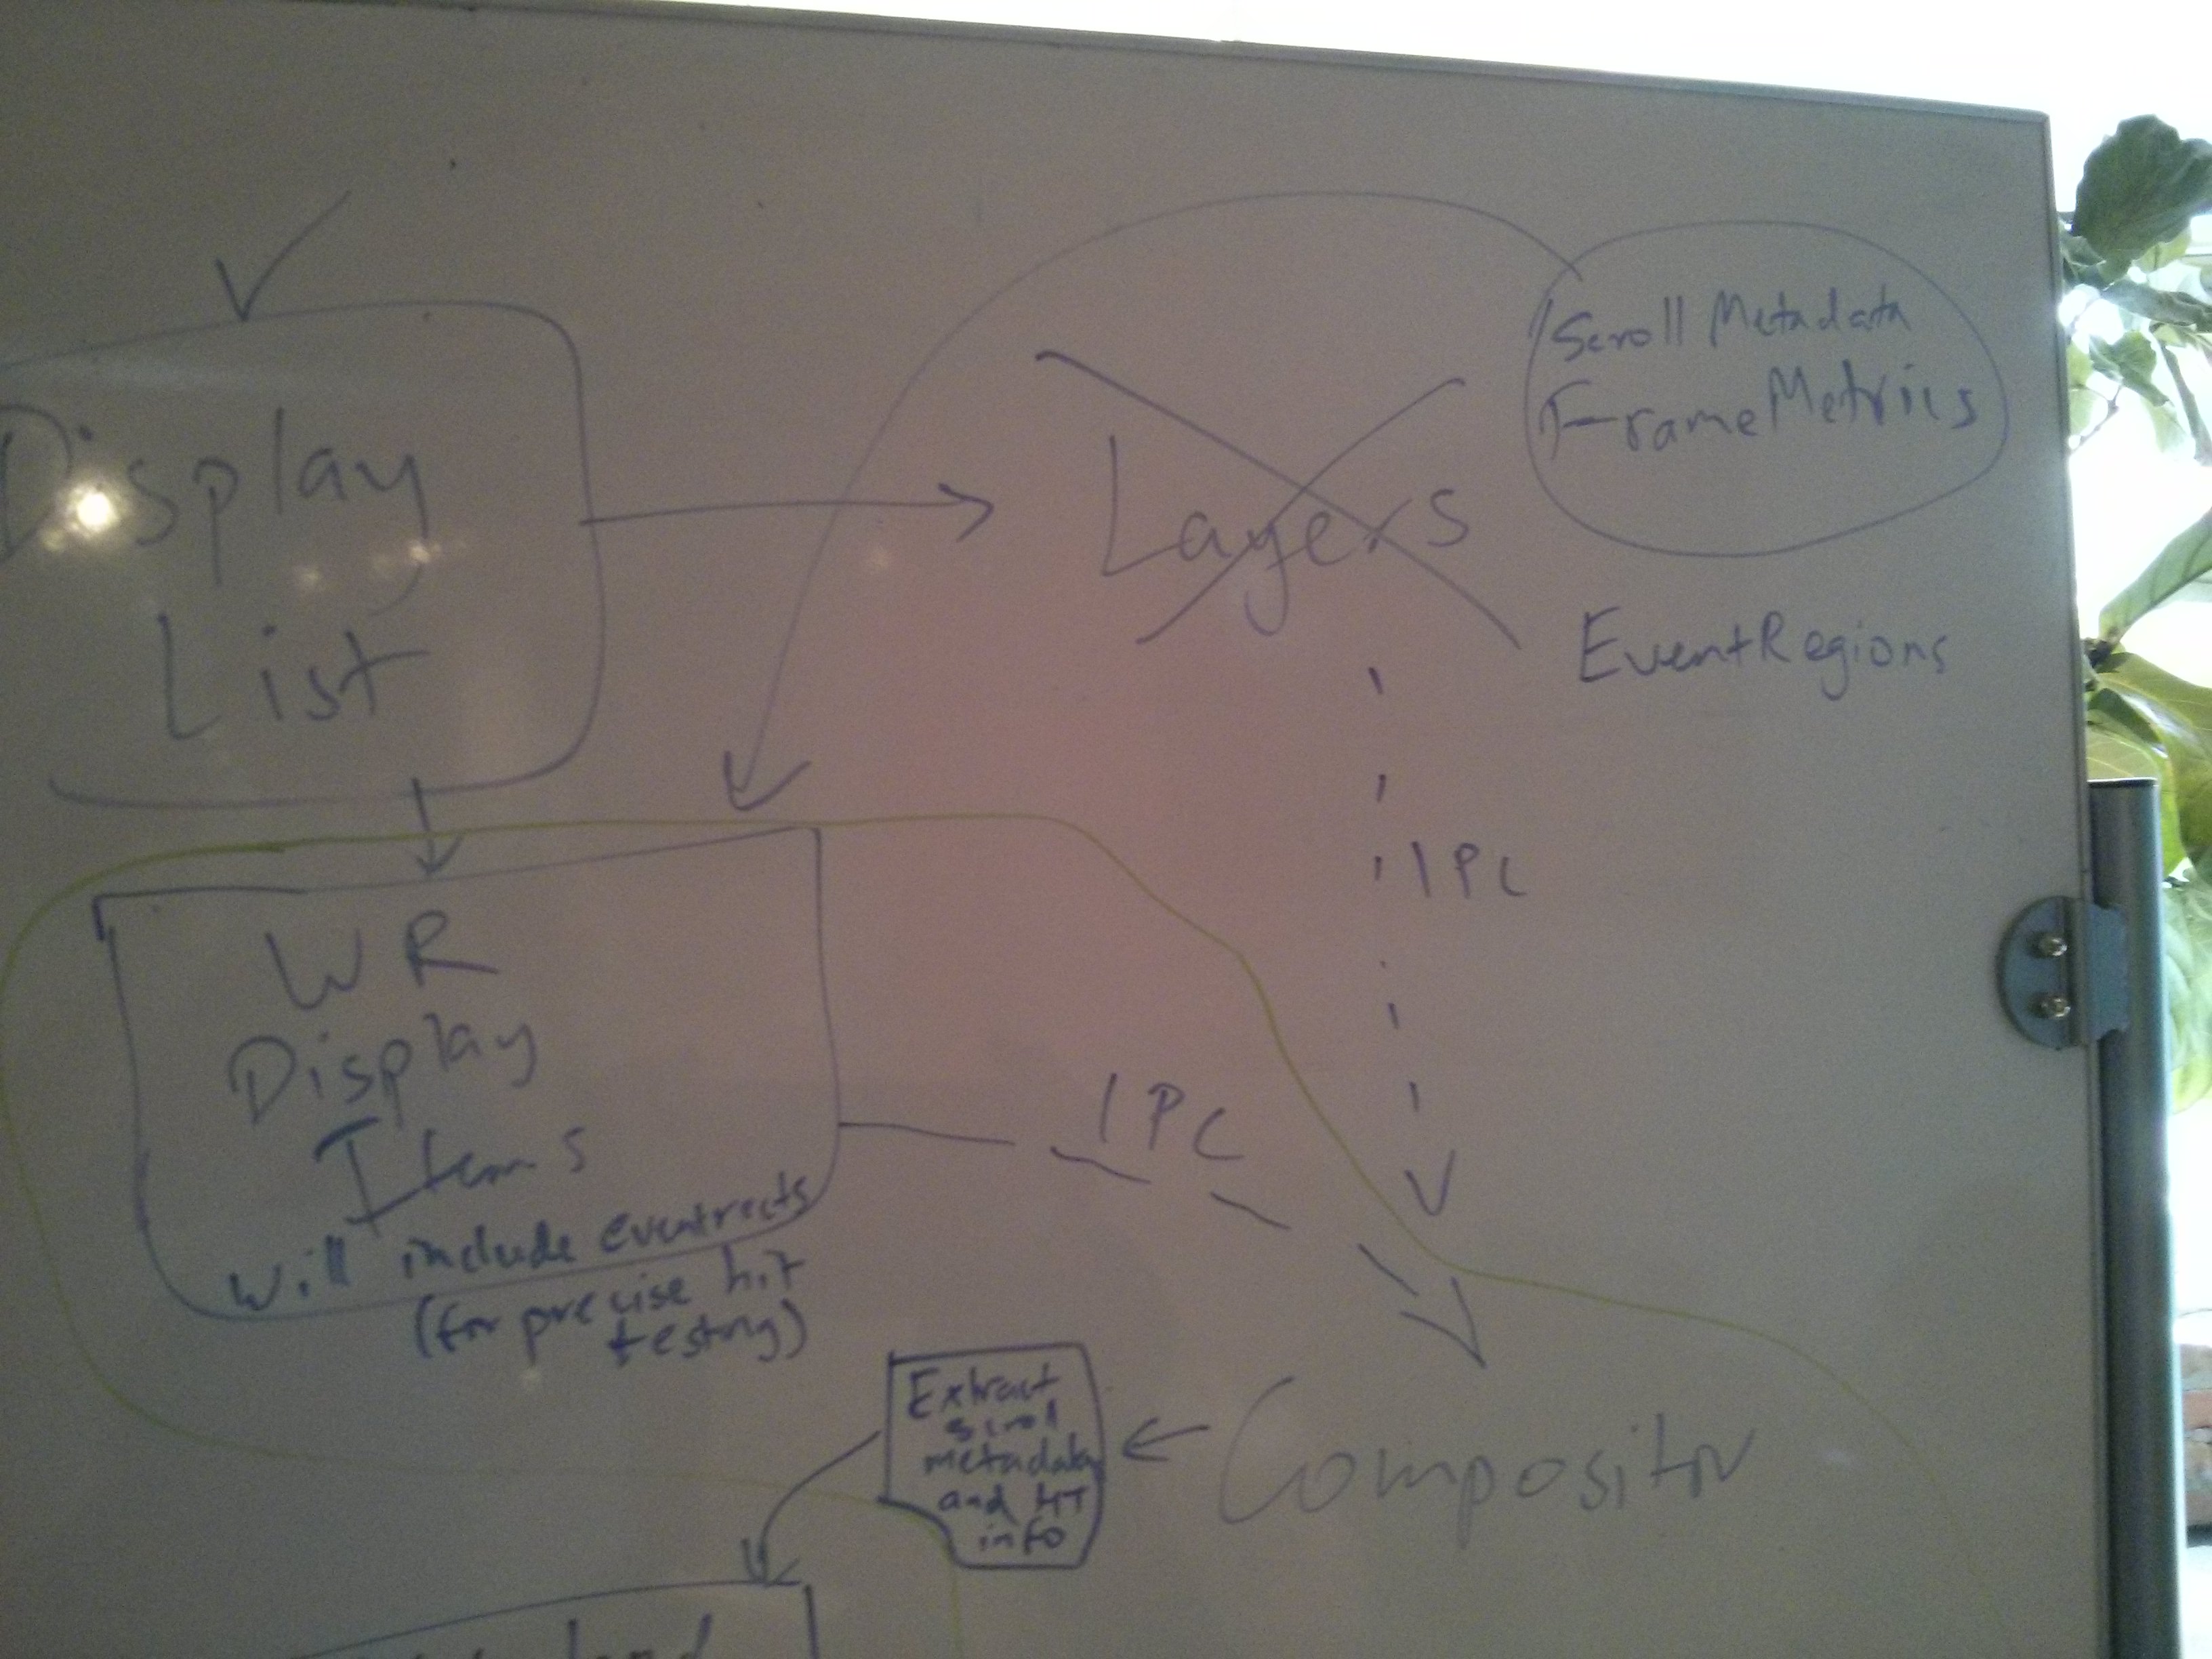 Display
List
Layers
Scroll Metadata
FrameMetrics
EventRegions
IPC
WR
Display
Items
will include eventrects
(for precise hit
testing)
IPC
Extract
scroll
metadata
and HT
info
Compositor